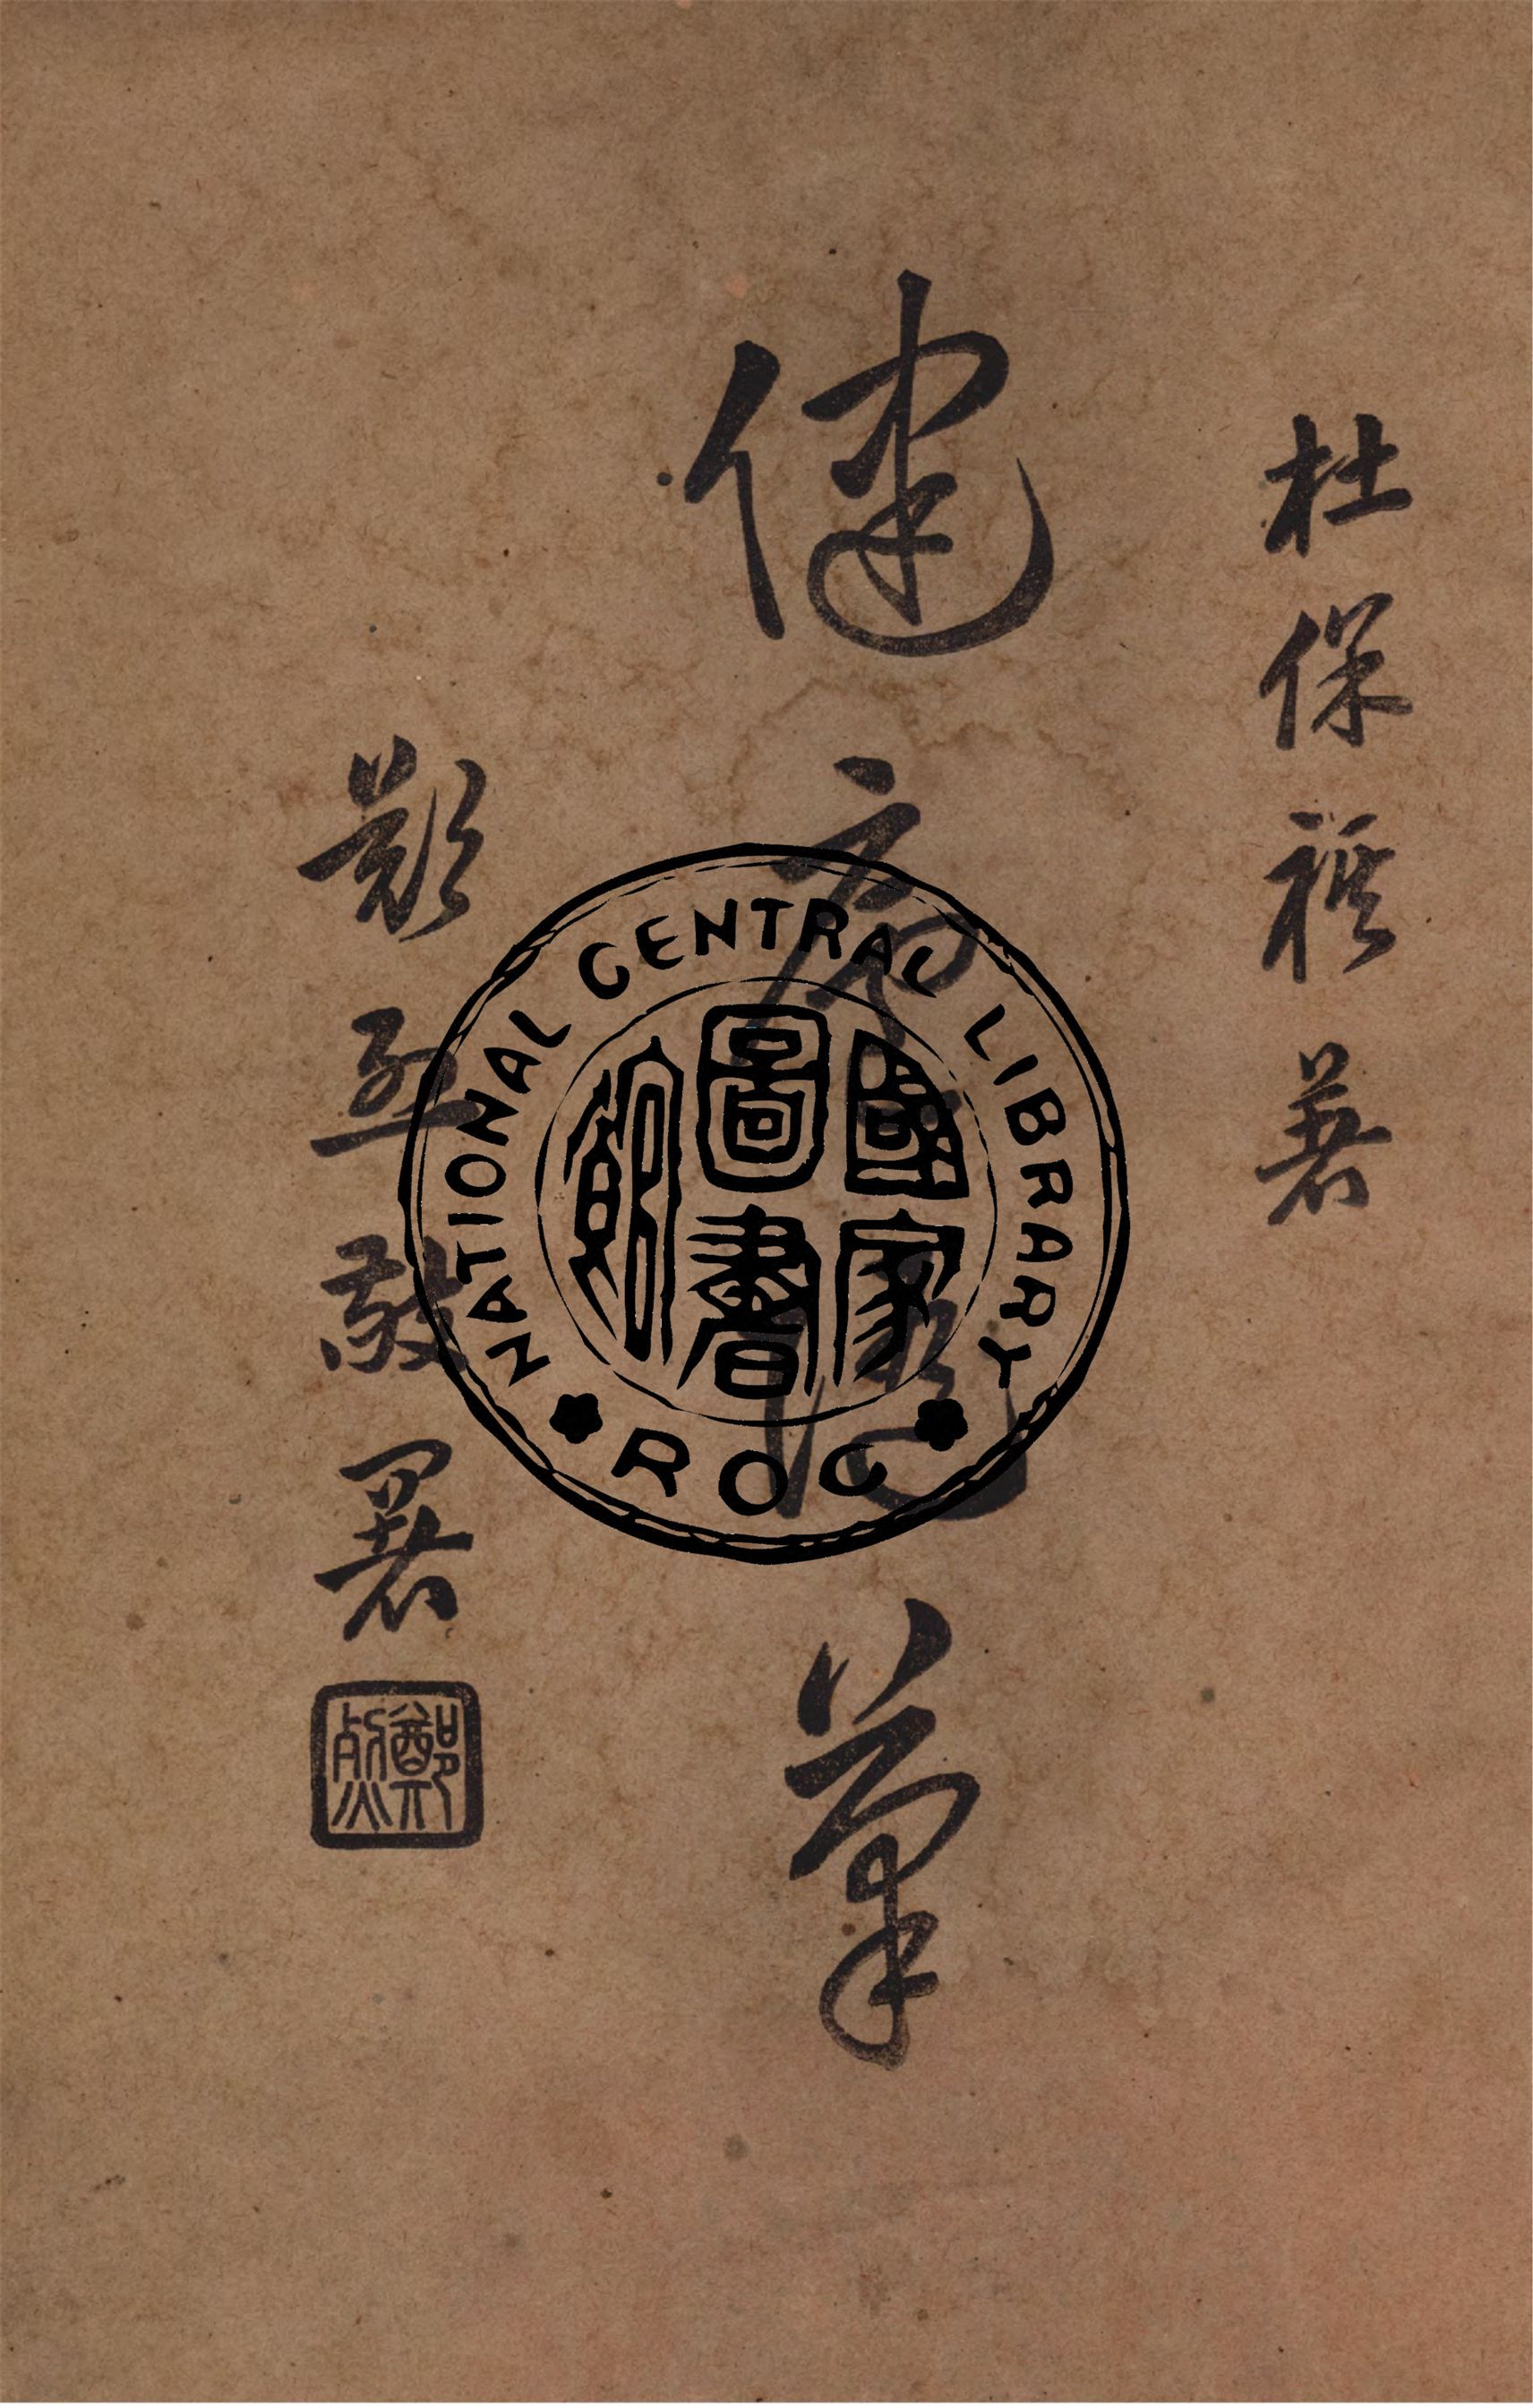 杜保祺著
健廬隨筆
鄭烈敬署
鄭烈
NATIONAL CENTRAL LIBRARY
國家圖書館
ROC